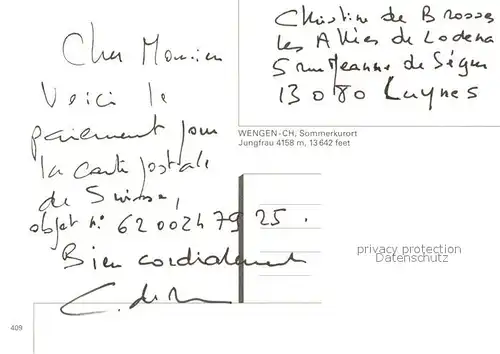 Cher Monsieur
Voici le
paiement pour
la carte postale
de Suisse,
objet n° 6200247925.
Bien cordialement
C. de
Christine de Brosses
Les Allées de Lodena
5 rue Jeanne de Ségur
13080 Luynes
WENGEN-CH, Sommerkurort
Jungfrau 4158 m, 13642 feet
privacy protection
Datenschutz
409